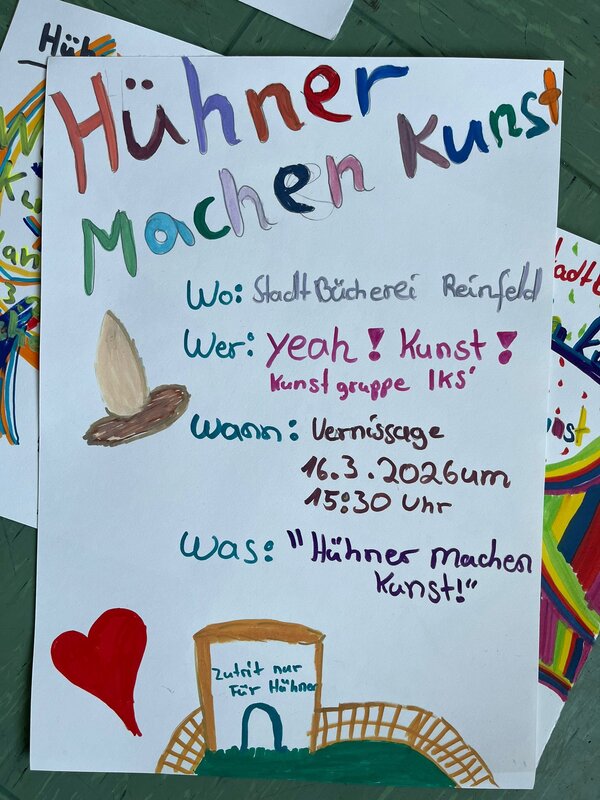 Hühner
Machen Kunst
Wo: Stadt Bücherei Reinfeld
Wer: Yeah! Kunst!
Kunstgruppe IKS'
Wann: Vernissage
16.3.2026 um
15:30 Uhr
Was: "Hühner machen
Kunst!"
Zutrit nur
Für Hühner
Hüh